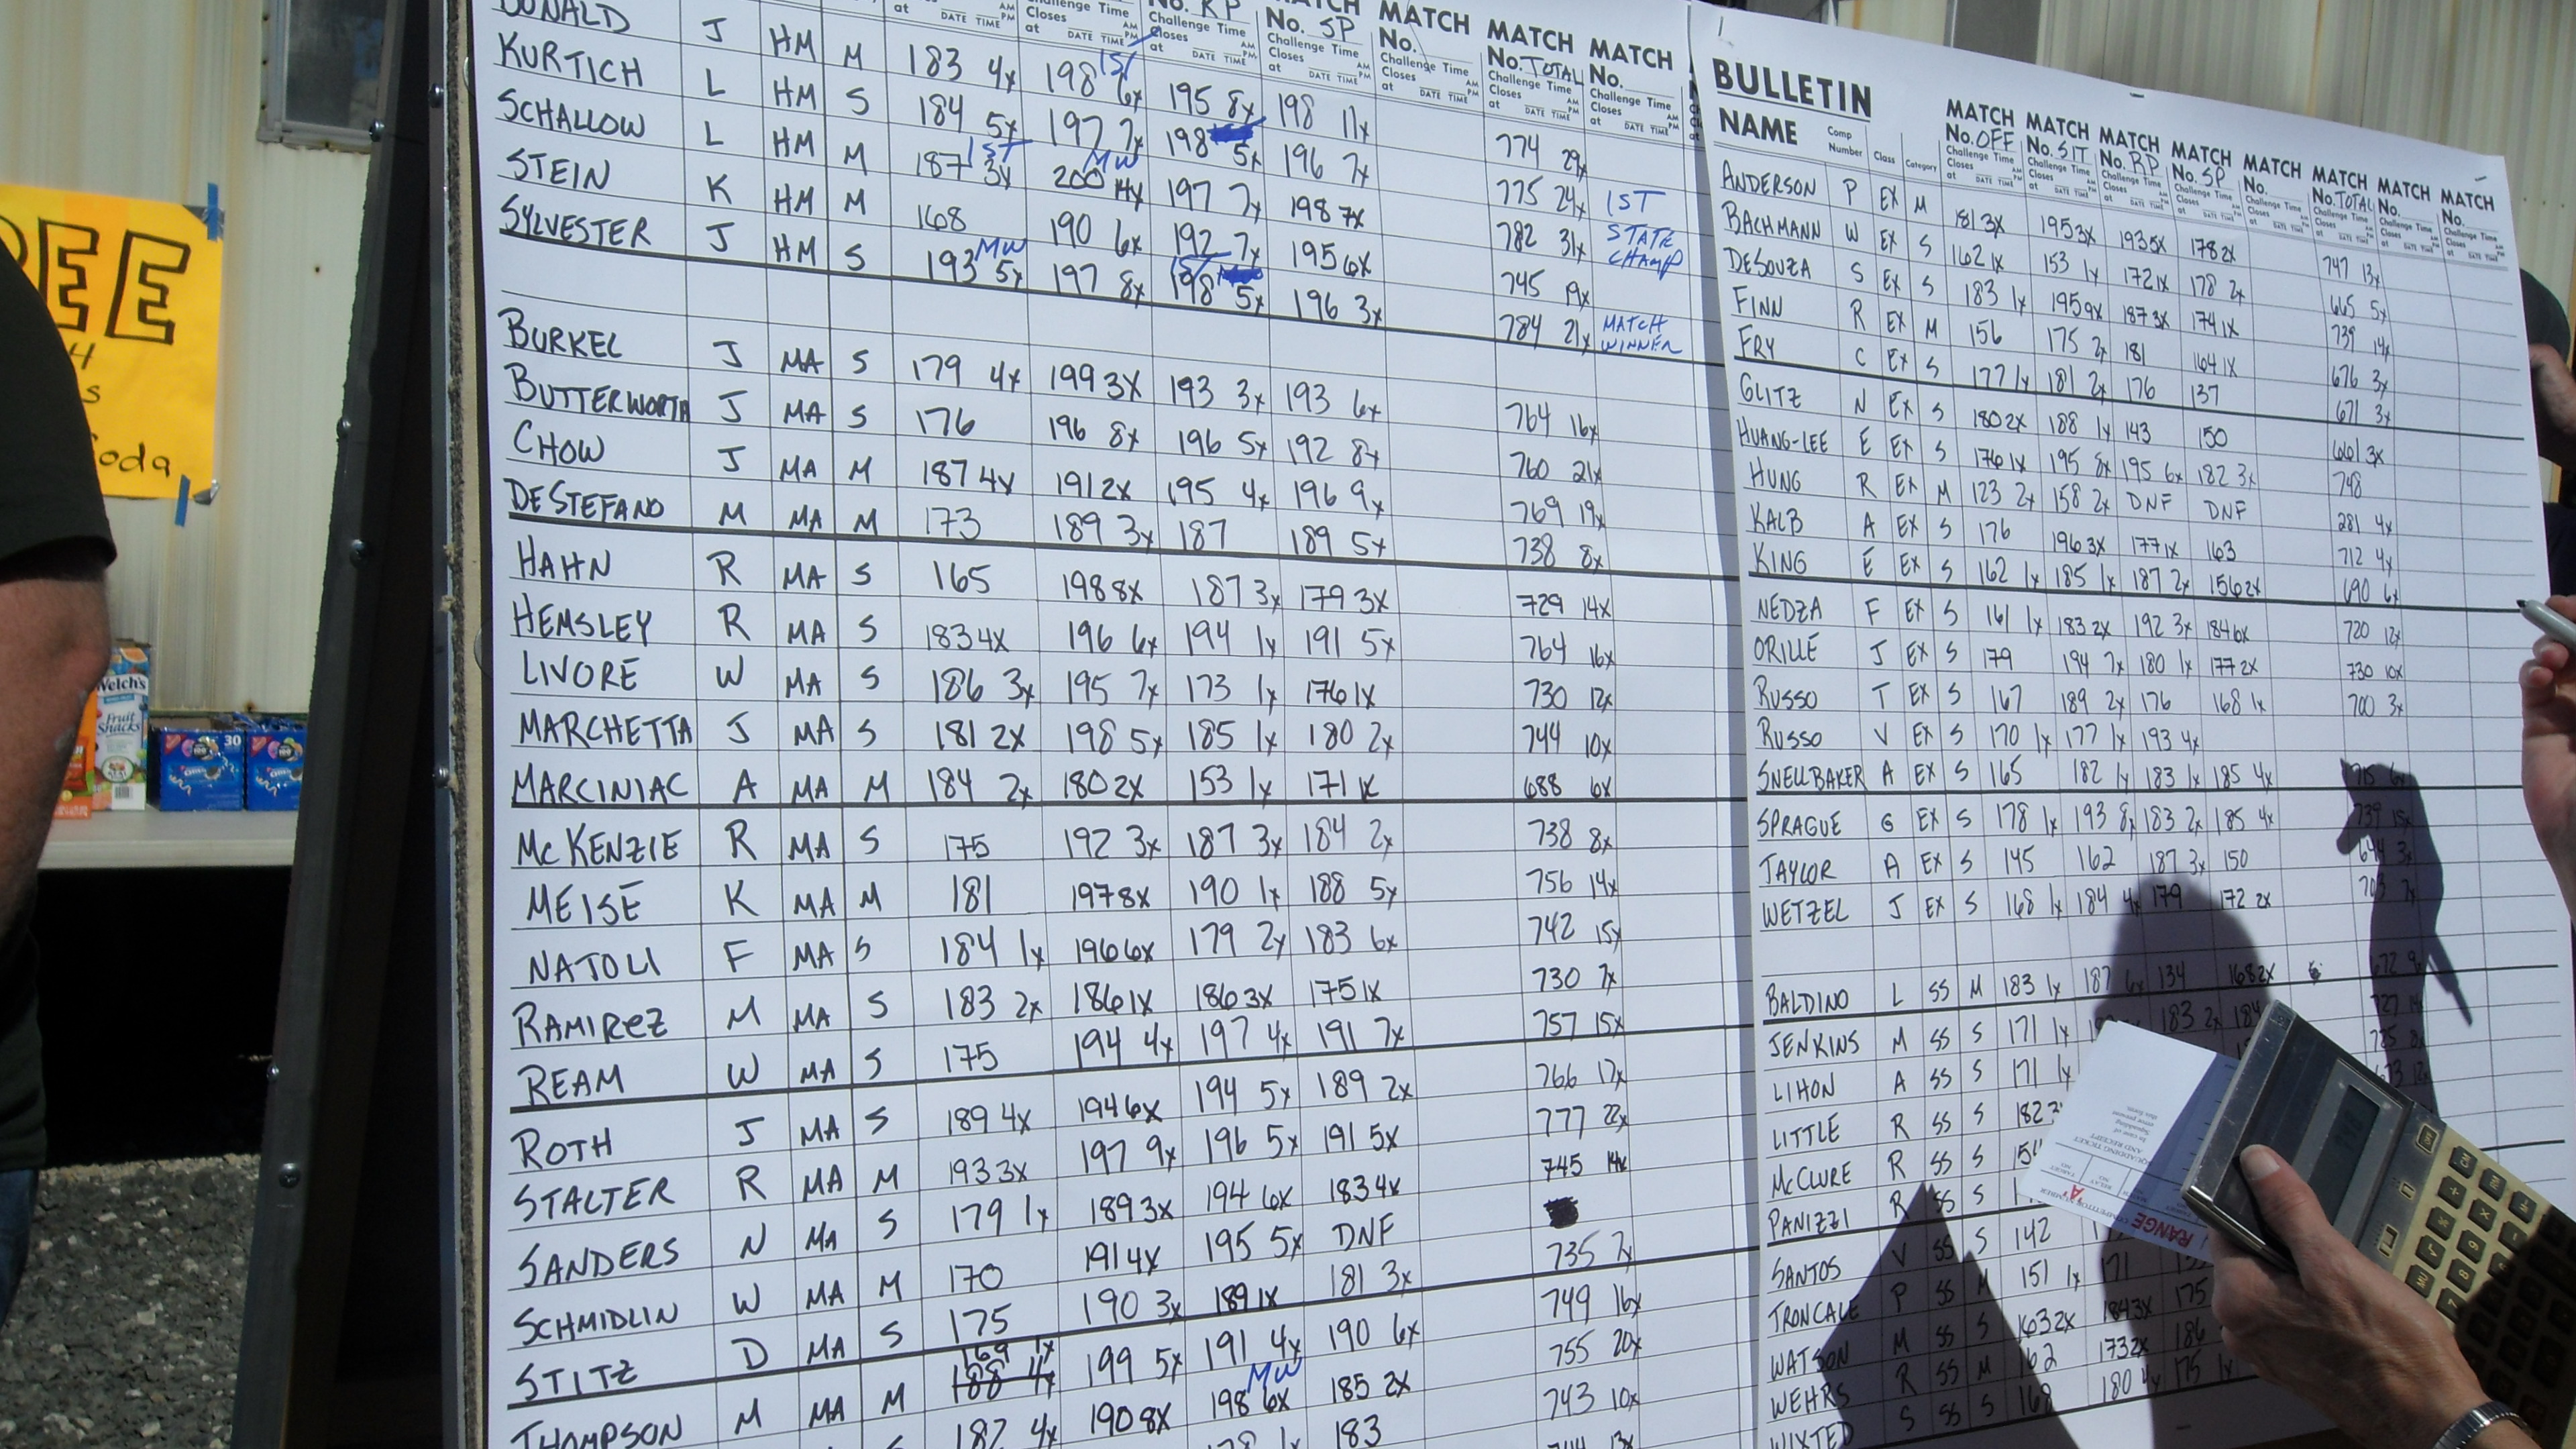 DONALD J HM M 183 4x 198 6x 195 8x 198 11x 774 29x
KURTICH L HM S 184 5x 197 7x 198 5x 196 7x 775 24x 1ST
SCHALLOW L HM M 187 3x 200 11x 197 7x 198 7x 782 31x STATE CHAMP
STEIN K HM M 168 190 6x 192 7x 195 6x 745 19x
SYLVESTER J HM S 193 5x MW 197 8x 198 5x 196 3x 784 21x MATCH WINNER
BURKEL J MA S 179 4x 199 3x 193 3x 193 6x 764 16x
BUTTERWORTH J MA S 176 196 8x 196 5x 192 8x 760 21x
CHOW J MA M 187 4x 191 2x 195 4x 196 9x 769 19x
DESTEFANO M MA M 173 189 3x 187 189 5x 738 8x
HAHN R MA S 165 198 8x 187 3x 179 3x 729 14x
HEMSLEY R MA S 183 4x 196 6x 194 1x 191 5x 764 16x
LIVORE W MA S 186 3x 195 7x 173 1x 176 1x 730 12x
MARCHETTA J MA S 181 2x 198 5x 185 1x 180 2x 744 10x
MARCINIAC A MA M 184 2x 180 2x 153 1x 171 1x 688 6x
McKENZIE R MA S 175 192 3x 187 3x 184 2x 738 8x
MEISE K MA M 181 197 8x 190 1x 188 5x 756 14x
NATOLI F MA S 184 1x 196 6x 179 2x 183 6x 742 15x
RAMIREZ M MA S 183 2x 186 1x 186 3x 175 1x 730 7x
REAM W MA S 175 194 4x 197 4x 191 7x 757 15x
ROTH J MA S 189 4x 194 6x 194 5x 189 2x 766 17x
STALTER R MA M 193 3x 197 9x 196 5x 191 5x 777 22x
SANDERS N MA S 179 1x 189 3x 194 6x 183 4x 745 14x
SCHMIDLIN W MA M 170 191 4x 195 5x DNF
STITZ D MA S 175 190 3x 189 1x 181 3x 735 7x
THOMPSON M MA M 169 1x 188 4x 199 5x 191 4x 190 6x 749 16x
182 4x 190 8x 198 6x MW 185 2x 755 20x
183 743 10x
BULLETIN
MATCH MATCH MATCH MATCH MATCH MATCH MATCH MATCH
NAME Comp Number Class Category No. OFF No. SIT No. RP No. SP No. No. TOTAL No. No.
Challenge Time Closes at DATE TIME AM PM
ANDERSON P EX M 181 3x 195 3x 193 5x 178 2x 747 13x
BACHMANN W EX S 162 1x 153 1x 172 1x 178 2x 665 5x
DESOUZA S EX S 183 1x 195 9x 187 3x 174 1x 739 14x
FINN R EX M 156 175 2x 181 164 1x 676 3x
FRY C EX S 177 1x 181 2x 176 137 671 3x
GLITZ N EX S 180 2x 188 1x 143 150 661 3x
HUANG-LEE E EX S 176 1x 195 8x 195 6x 182 3x 748
HUNG R EX M 123 2x 158 2x DNF DNF 281 4x
KALB A EX S 176 196 3x 177 1x 163 712 4x
KING E EX S 162 1x 185 1x 187 2x 156 2x 690 6x
NEDZA F EX S 161 1x 183 2x 192 3x 184 6x 720 12x
ORILLE J EX S 179 194 7x 180 1x 177 2x 730 10x
RUSSO T EX S 167 189 2x 176 168 1x 700 3x
RUSSO V EX S 170 1x 177 1x 193 4x
SNELLBAKER A EX S 165 182 1x 183 1x 185 4x 715 6x
SPRAGUE G EX S 178 1x 193 8x 183 2x 185 4x 739 15x
TAYLOR A EX S 145 162 187 3x 150 644 3x
WETZEL J EX S 168 1x 184 4x 179 172 2x 703 7x
BALDINO L SS M 183 1x 187 6x 134 168 2x 672 9x
JENKINS M SS S 171 1x 183 2x 184 727 14x
LIHON A SS S 171 1x
LITTLE R SS S 182
McCLURE R SS S
PANIZZI R SS S
SANTOS V SS S 142
TRONCALE P SS M 151 1x 171
WATSON M SS S 163 2x 184 3x 175
WEHRS R SS M 162 173 2x 186
WIXTED S SS S 168 180 175 1x
Welch's
Fruit Snacks
30
EE
oda
RANGE